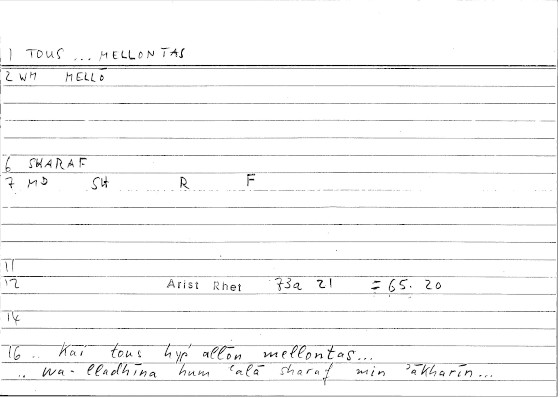 1 TOUS ... MELLONTAS
2 WM MELLŌ
6 SHARAF
7 MD SH R F
11
12 Arist Rhet 73a 21 = 65. 20
14
16 .. Kai tous hyp' allōn mellontas...
.. wa-lladhīna hum ʿalā sharaf min ʾākharīn...